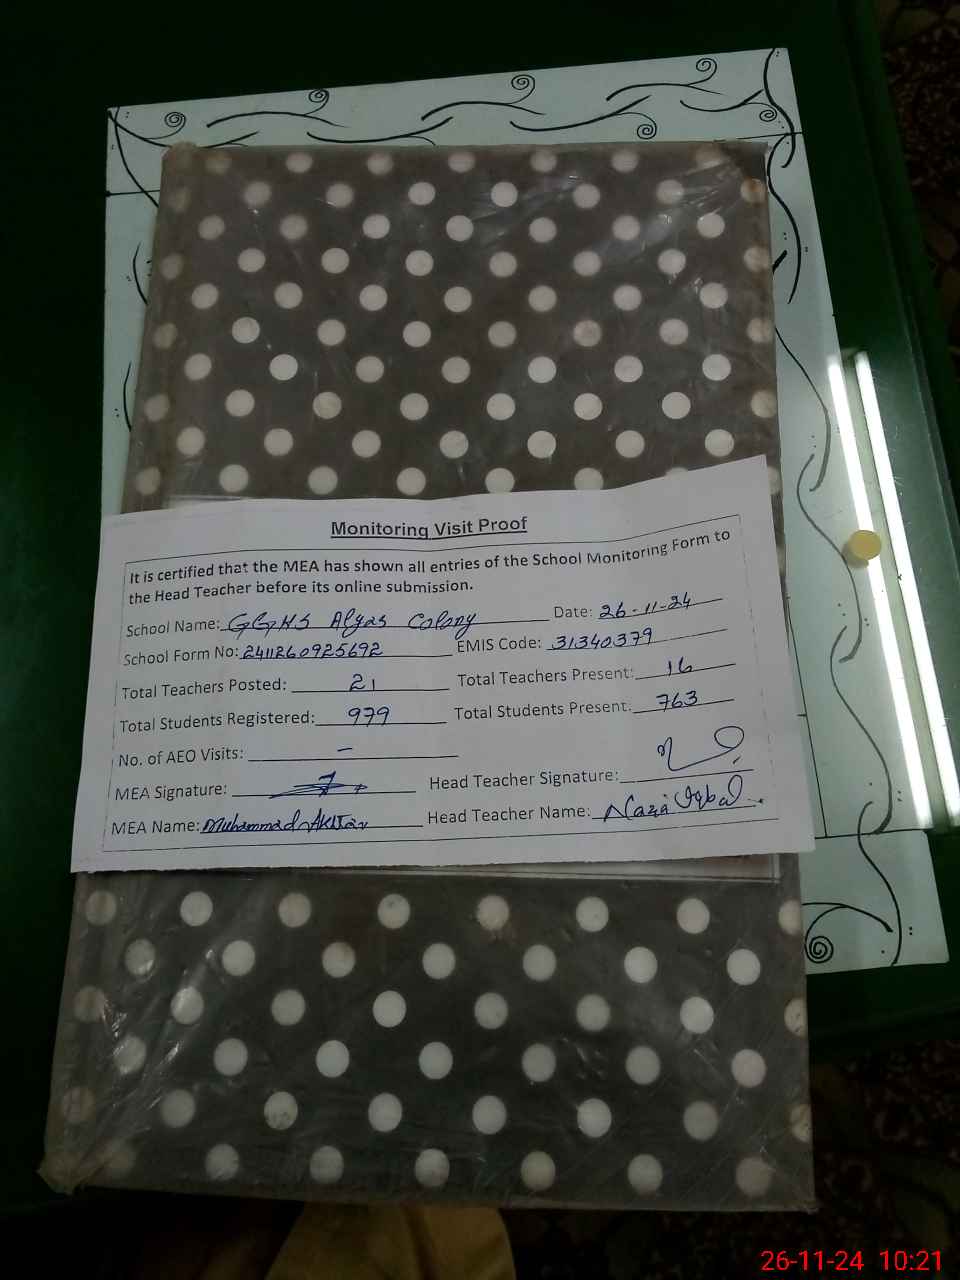 Monitoring Visit Proof
It is certified that the MEA has shown all entries of the School Monitoring Form to
the Head Teacher before its online submission.
School Name: GGHS Alyas Colony Date: 26-11-24
School Form No: 2411260925692 EMIS Code: 31340379
Total Teachers Posted: 21 Total Teachers Present: 16
Total Students Registered: 979 Total Students Present: 763
No. of AEO Visits: –
MEA Signature: Head Teacher Signature:
MEA Name: Muhammad Akhtar Head Teacher Name: Nazia Iqbal
26-11-24 10:21